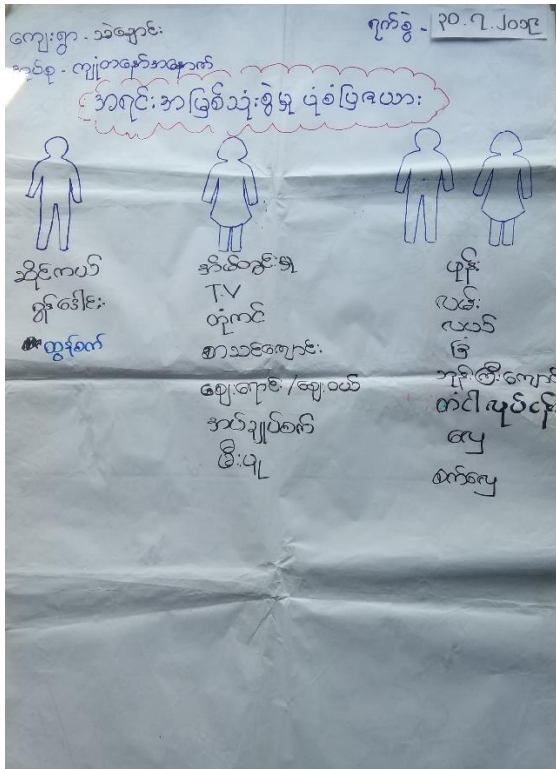 ကျေးရွာ - သဲချောင်း
ရက်စွဲ - ၃၀.၇.၂၀၁၉
အုပ်စု - ကျုံတနော်အနောက်
အရင်းအမြစ်သုံးစွဲမှု ပုံစံပြဇယား
ဆိုင်ကယ်
ရွှန်ဒေါင်း
ထွန်စက်
အိမ်တွင်းမှု
T.V
တုံကင်
စာသင်ကျောင်း
ဈေးရောင်း/ဈေးဝယ်
အပ်ချုပ်စက်
မီးပူ
ဖုန်း
လမ်း
လယ်
ခြံ
ဘုန်းကြီးကျောင်း
တံငါလုပ်ငန်း
လှေ
စက်လှေ